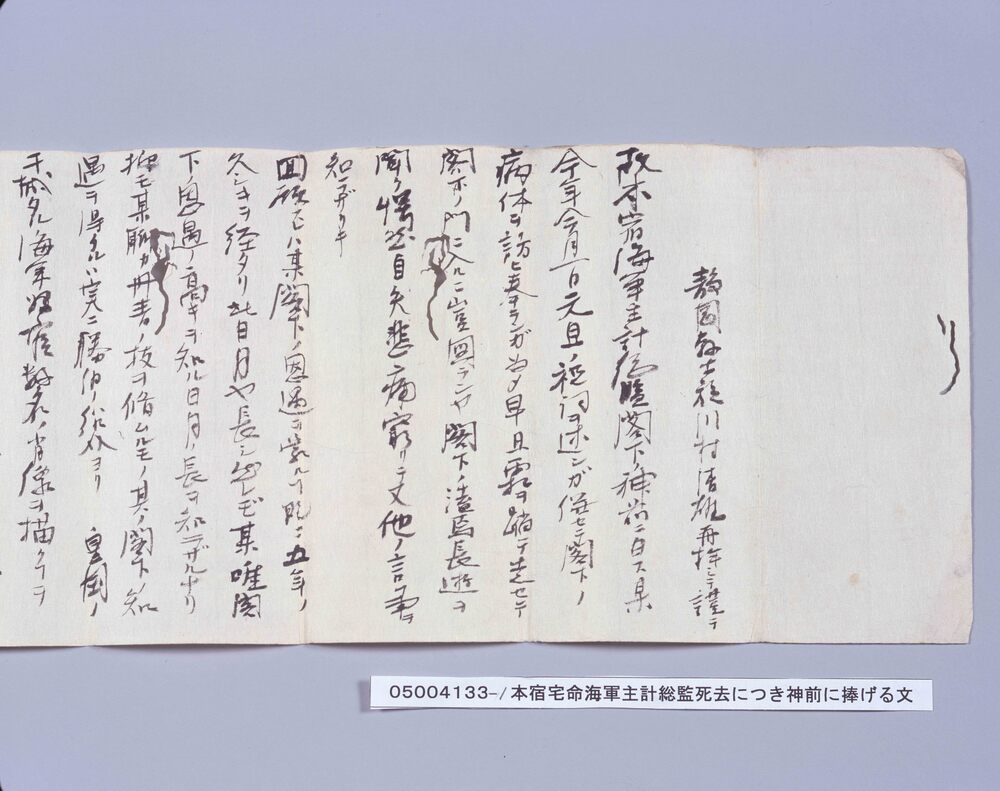 静岡士族川村清雄再拝シテ謹テ
故本宿海軍主計総監閣下ノ神前ニ白ス某
今年今月一日元旦ノ祝詞ヲ述ンガ併セテ閣下ノ
病体ヲ訪ヒ奉ランガ為メ早旦霜ヲ踏テ走セテ
閣下ノ門ニ入ルニ豈図ランヤ閣下ノ溘焉長逝ヲ
聞ク愕然自失悲痛窮リテ又他ノ言フヲ
知ラザリキ
回顧スレハ某閣下ノ恩遇ヲ蒙ル既ニ五年ノ
久シキヲ経タリ此日月ヤ長シ然レドモ某唯閣
下恩遇ノ高キヲ知ル日月ノ長ヲ知ラザルナリ
抑モ某聊カ丹青ノ技ヲ修ムルモ其ノ閣下ノ知
遇ヲ得タルハ実ニ勝伯ノ紹介ヨリ 皇国ノ
干城タル海軍将官数名ノ肖像ヲ描クニ
05004133-/本宿宅命海軍主計総監死去につき神前に捧げる文